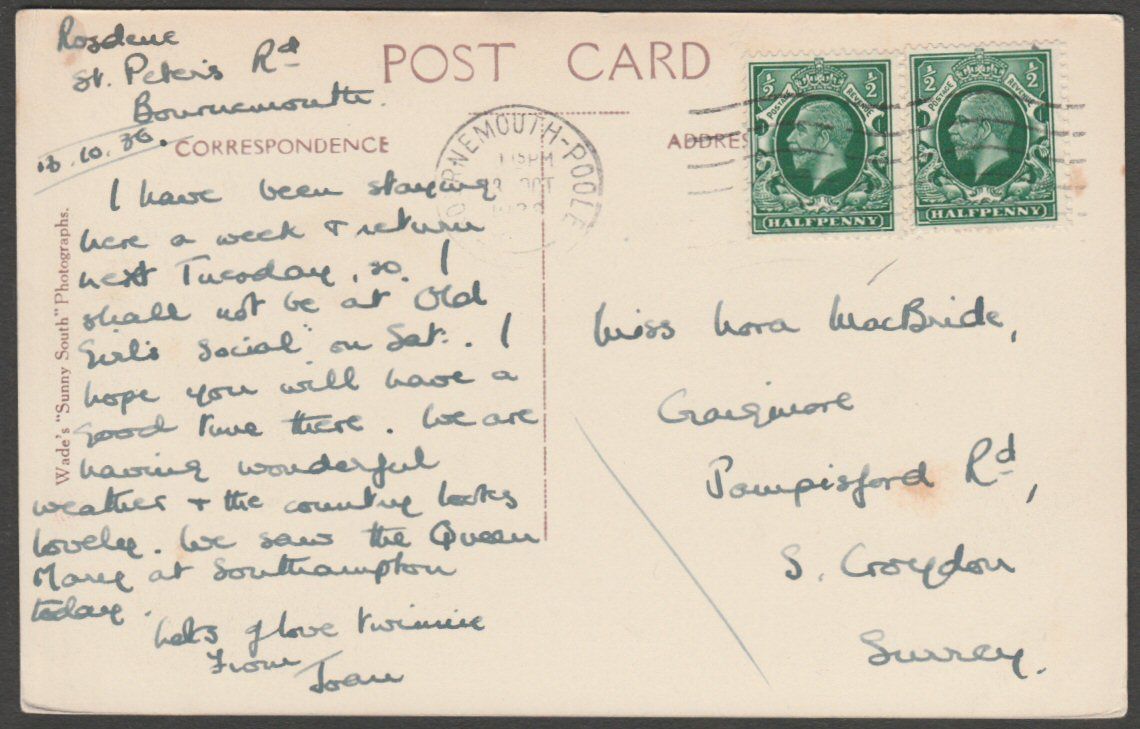 Rosdene
St. Peter's Rd
Bournemouth.
13.10.36.
POST CARD
CORRESPONDENCE
ADDRES
I have been staying
here a week & return
next Tuesday, so I
shall not be at "Old
Girl's Social" on Sat. I
hope you will have a
good time there. We are
having wonderful
weather & the country looks
lovely. We saw the Queen
Mary at Southampton
today.
Lots of love
From Joan
Wade's "Sunny South" Photographs.
BOURNEMOUTH-POOLE
15PM
OCT
½ ½
POSTAGE REVENUE
HALFPENNY
½ ½
POSTAGE REVENUE
HALFPENNY
Miss Nora MacBride,
Craigmore
Pampisford Rd,
S. Croydon
Surrey.